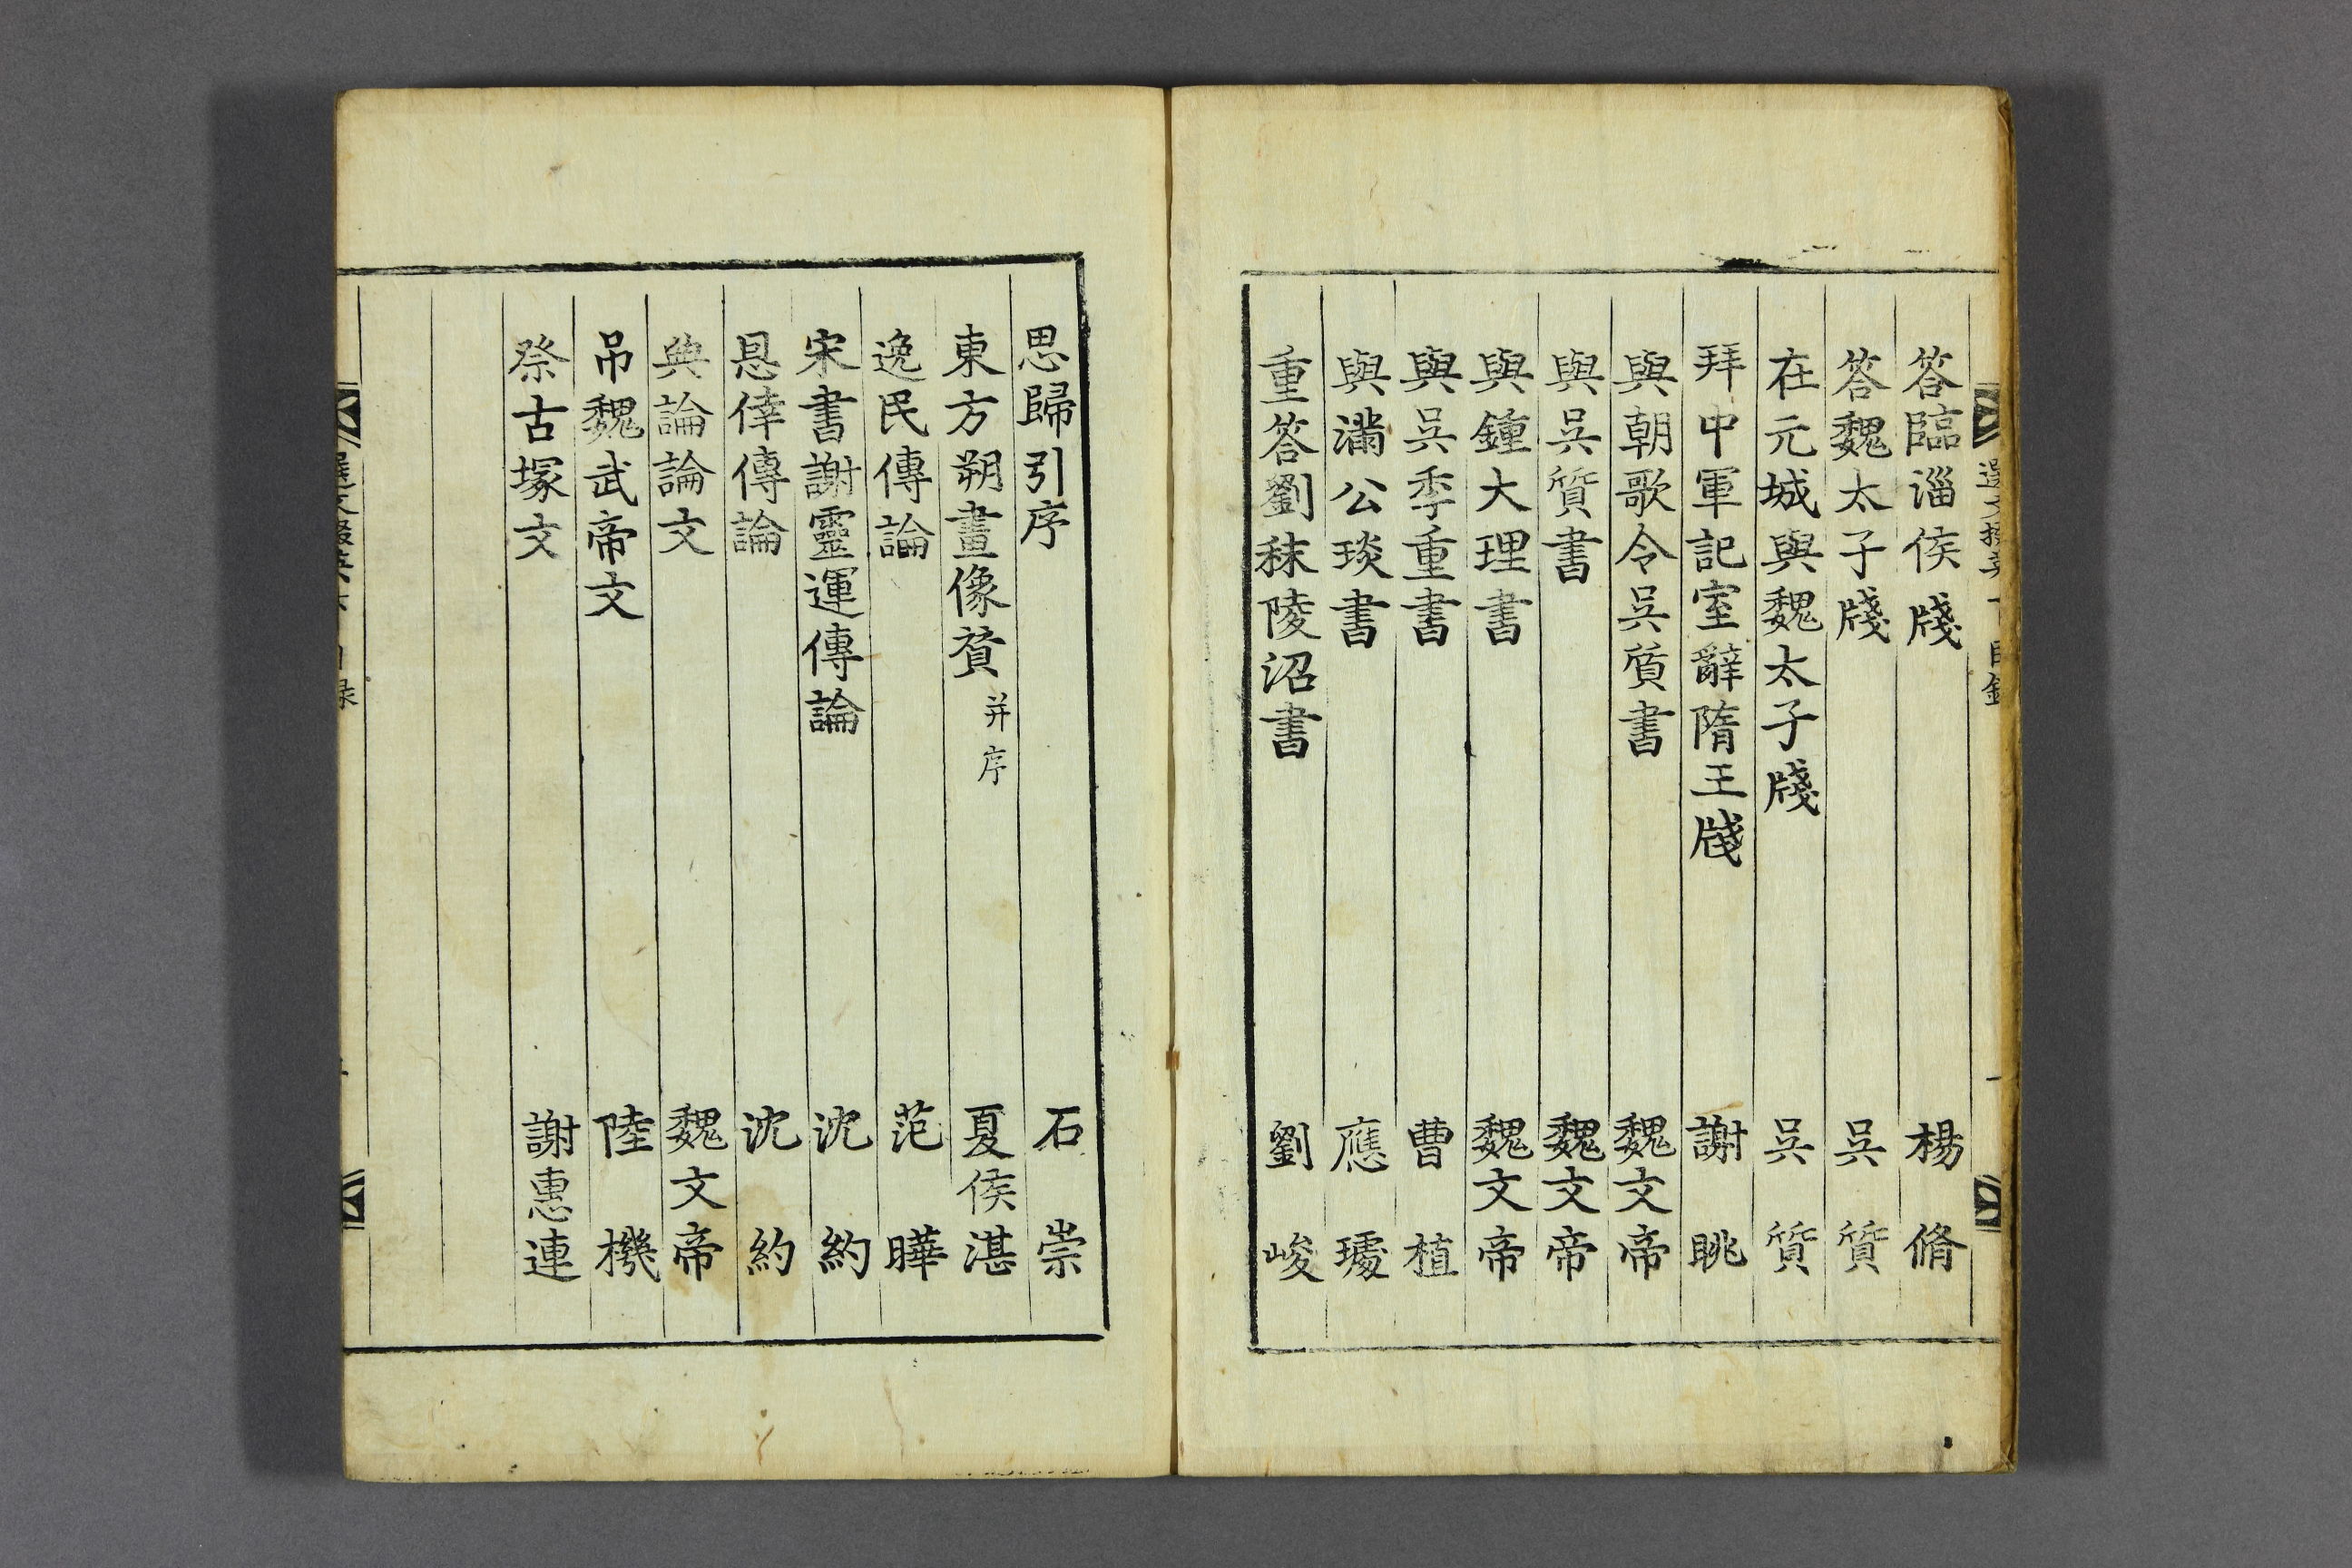 答臨淄侯牋 楊脩
答魏太子牋 吳質
在元城與魏太子牋 吳質
拜中軍記室辭隋王牋 謝眺
與朝歌令吳質書 魏文帝
與吳質書 魏文帝
與鍾大理書 魏文帝
與吳季重書 曹植
與滿公琰書 應璩
重答劉秣陵沼書 劉峻
思歸引序 石崇
東方朔畫像賛并序 夏侯湛
逸民傳論 范曄
宋書謝靈運傳論 沈約
恩倖傳論 沈約
典論論文 魏文帝
吊魏武帝文 陸機
祭古塚文 謝惠連